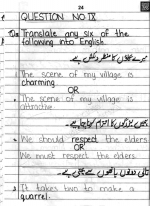 24
QUESTION NO IX
Translate any six of the
following into English
میرے گاؤں کا منظر دلکش ہے
The scene of my village is
charming
OR
The scene of my village is
attractive
ہمیں بزرگوں کا احترام کرنا چاہیے۔
We should respect the elders
OR
We must respect the elders.
تالی دونوں ہاتھوں سے بجتی ہے۔
It takes two to make a
quarrel.